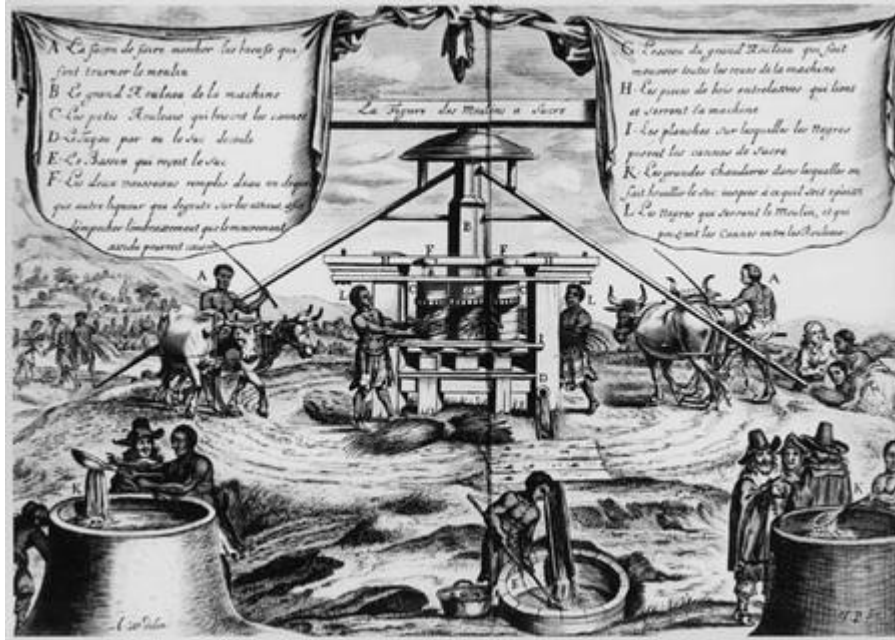 A La façon de faire marcher les bœufs qui
font tourner le moulin
B Le grand Rouleau de la machine
C Les petis Rouleaus qui brisent les cannes
D Le Tuyau par ou le suc decoule
E Le Bassin qui reçoit le suc
F Les deux vaisseaus remplis d'eau ou de quel
que autre liqueur qui degoute sur les
empecher l'embrasement que le mouvement
rapide pourroit causer
La Figure des Moulins a Sucre
G du grand Rouleau qui fait
mouvoir toutes les roues de la machine
H Les pieces de bois entrelassees qui lient
et serrent la machine
I Les planches sur lesquelles les Negres
posent les cannes de Sucre
K Les grandes chaudieres dans lesquelles on
fait bouillir le suc jusques a ce quil soit
L Les Negres qui servent le Moulin, et qui
les Cannes entre les Rouleaus
A
B
F
F
A
L
C
L
I
D
K
E
K